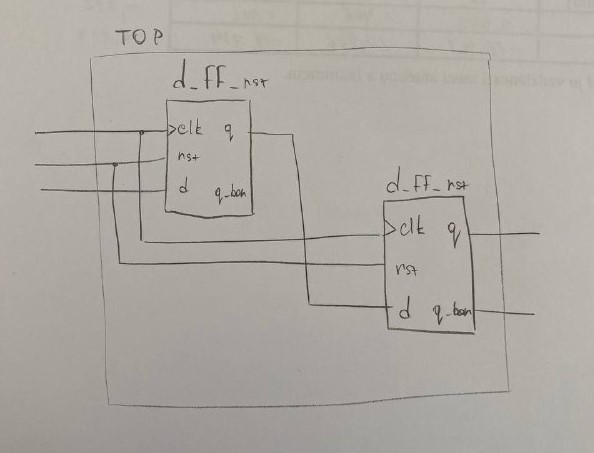 TOP
d_ff_rst
clk q
rst
d q_bar
d_ff_rst
clk q
rst
d q_bar